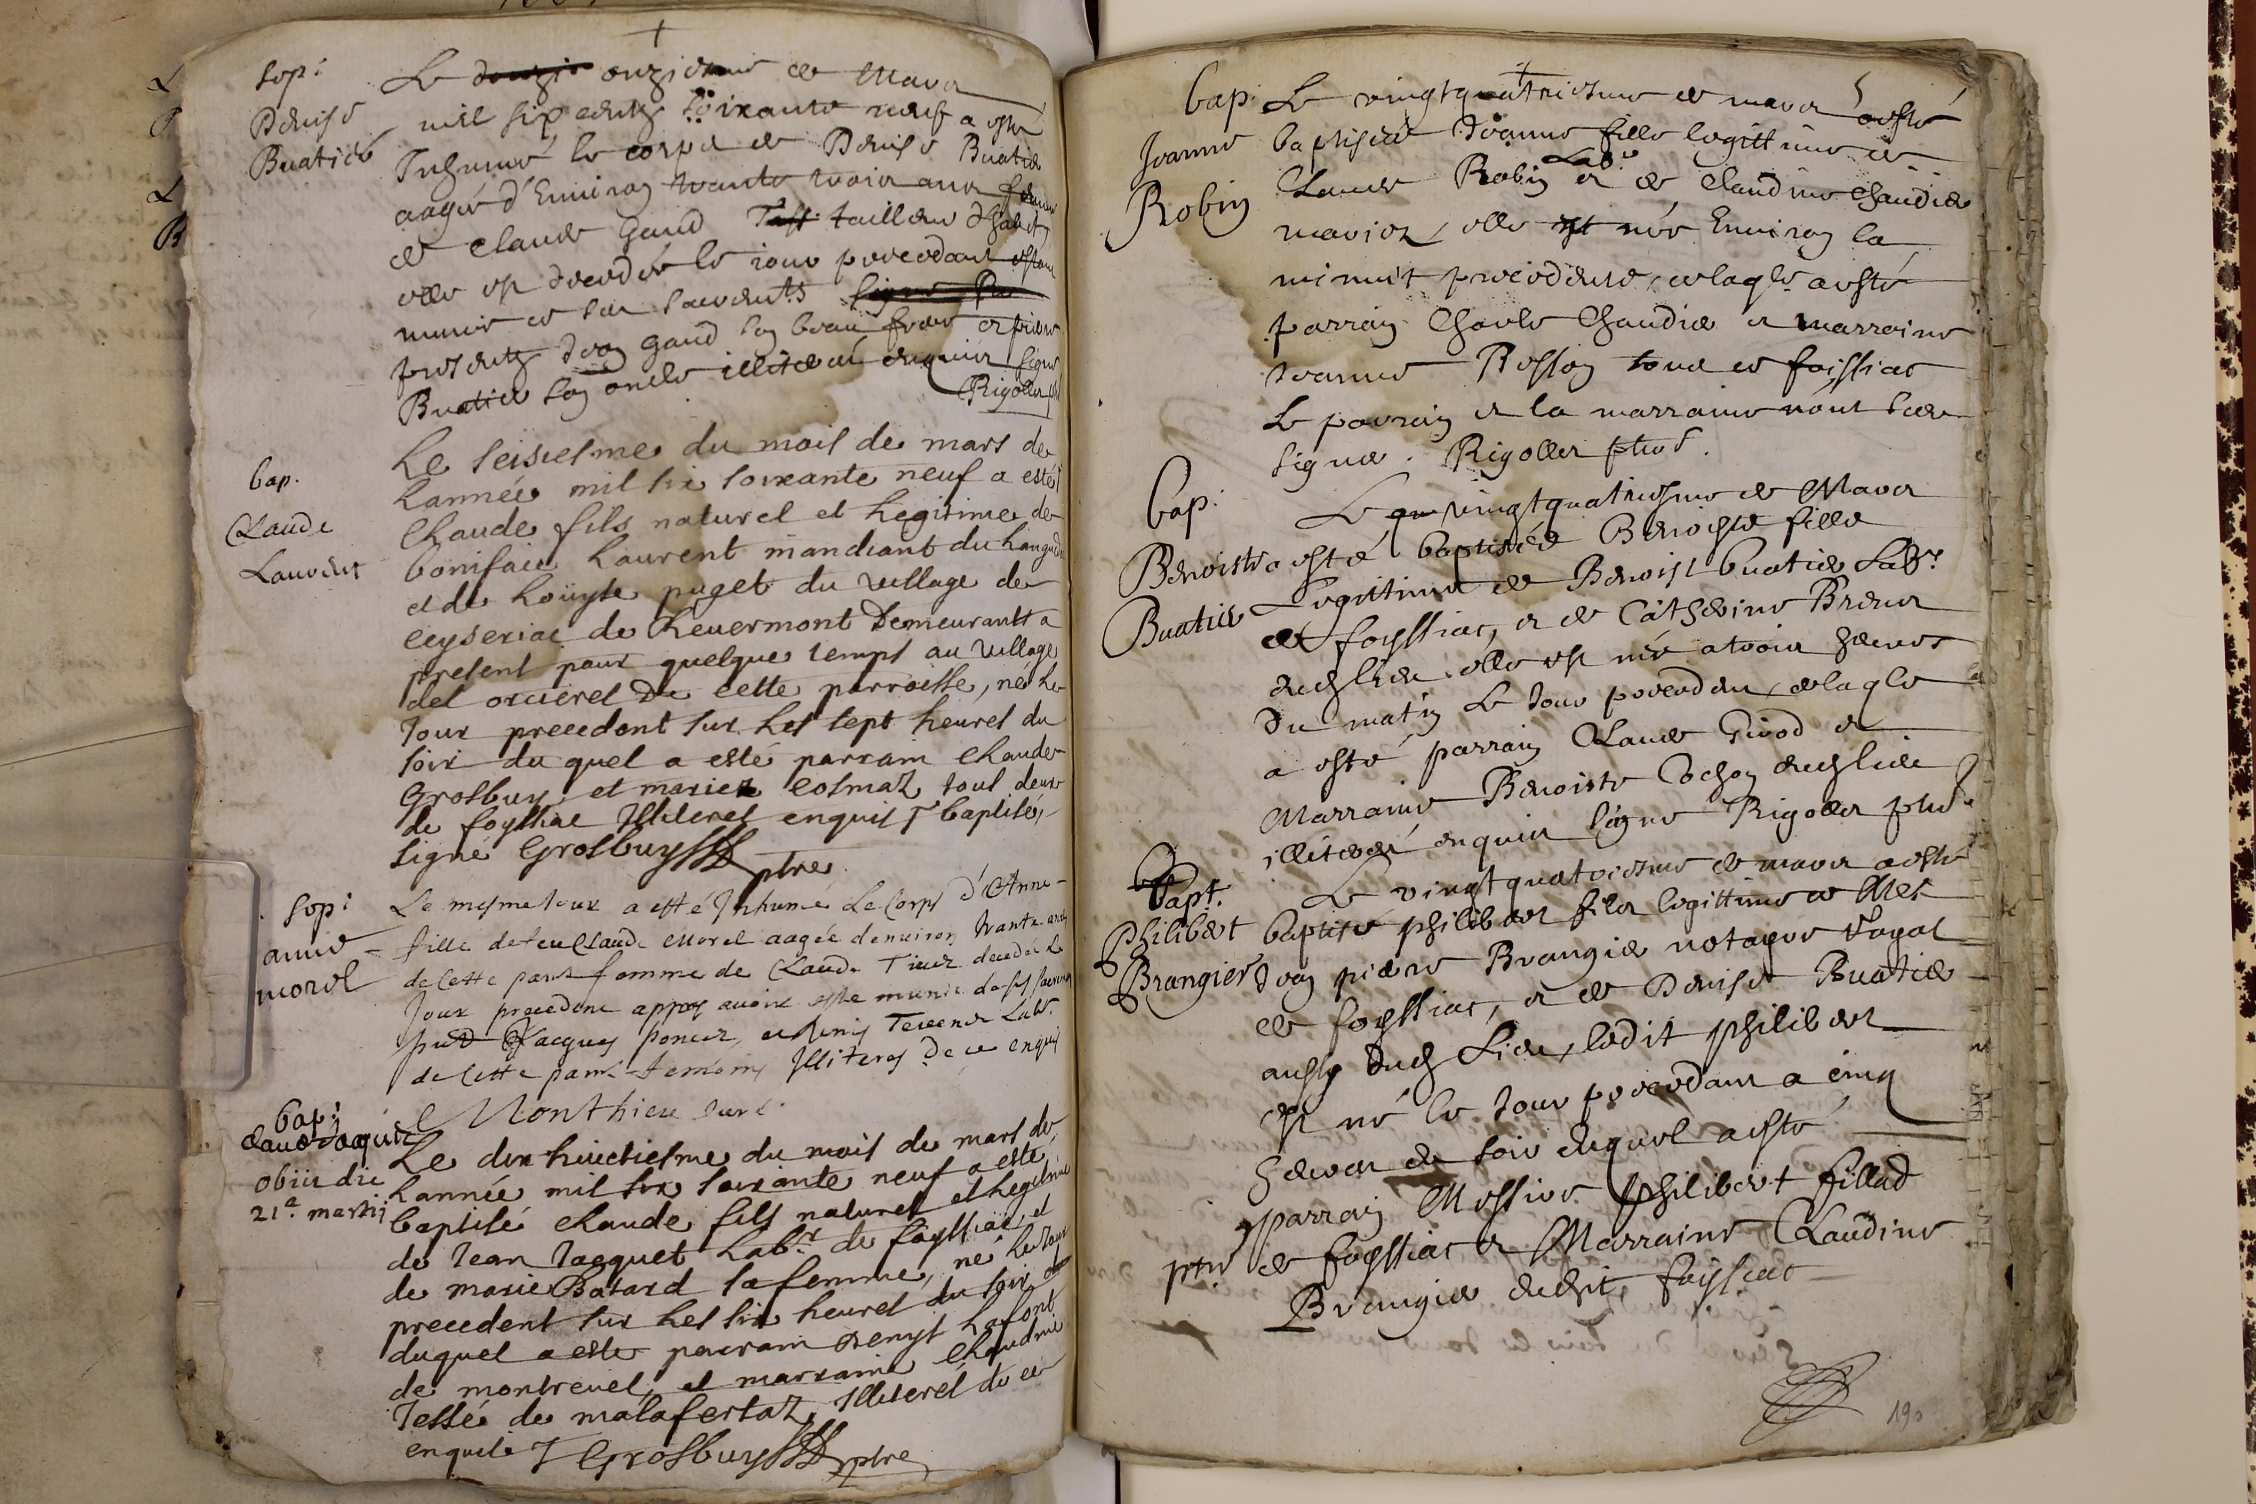 Sep:
Denise
Buatier
Le douzie onziesme de Mars
mil six centz soixante neuf a esté
Inhumé le corps de Denise Buatier
aagée d'Environ trante trois ans femme
de Claude Gaud tailleur d'habit
elle est decedée le jour precedant estant
munie de ses sacrents signe Pr
presentz Jean Gaud son beau frere et pierre
Buatier son oncle illiterés enquis signe
Rigollet ptre
bap.
Claude
Laurent
Le seisiesme du mois de mars de
Lannée mil six soixante neuf a esté
Claude fils naturel et Legitime de
bonifaice Laurent mandiant du Languedo
et de Loüyse puget du village de
ceyseriac de Reuermont Demeurantt a
present pour quelque temps au village
des orcieres De cette parroisse, né Le
Jour precedent sur Les sept heures du
soir du quel a esté parrain Claude
Grosbuy et mariez colmaz tous deux
de foyssiac Illiteres enquis ⸸ baptisé,
signé Grosbuy ptre
Sep:
anne
morel
Le mesme Jour a esté Inhumé Le Corps d'Anne
fille de feu Claude Morel aagée denuiron trante ans
de Cette parsse femme de Claude Tiuer decedée Le
Jour precedent appres auoir esté munie de ses sacrem
pnt Jacques poncet, et Denis Teuenet Labr
de Cette parsse temoins Illiteres De ce enquis
Monthieu Curé
bap:
Claude Jaquet
obiit die
21a martij
Le dix huictiesme du mois de mars de
Lannée mil six soixante neuf a este
baptisé Claude fils naturel et Legitime
de Jean Jacquet Labr de foyssiac, et
de marie Batard sa femme, né Le Jour
precedent sur Les six heures du soir
duquel a este parrain Denys Lafont
de montreuel, et marraine Claudine
Tessé de malafertaz, Illiteres de ce
enquis ⸸ Grosbuy ptre
bap:
Jeanne
Robin
Le vingtquatriesme de mars a esté
baptisée Jeanne fille legittime de
Claude Robin Labr et de Claudine Chaudier
mariez, elle est née Environ la
minuit precedente, de laqle a esté
parrain Charle Chaudier et marraine
Jeanne Besson tous de foissiac
Le parrain et la marraine n'ont sceu
signer. Rigollet ptre.
bap:
Benoiste
Buatier
Le qu vingtquatriesme de Mars
a esté baptisée Benoiste fille
Legittime de Benoist buatier Labr
de foyssiac, et de Catherine Breun
dudt lieu elle est née a trois heures
Du matin Le Jour precedent, de laqle
a esté parrain Claude Girod et
Marraine Benoiste Cochon dudt lieu
illiterés enquis signe Rigollet ptre
Bapt.
Philibert
Brangier
Le vingtquatriesme de mars a esté
baptisé philibert fils legittime de Me
Jean pierre Brangier notayre Royal
de foyssiac, et de Denise Buatier
aussy dudt Lieu, ledit philibert
est né le Jour precedant a cinq
heures du soir duquel a esté
parrain Messire Philibert fillod
ptre de foyssiac et Marraine Claudine
Brangier dudit foyssiac
190